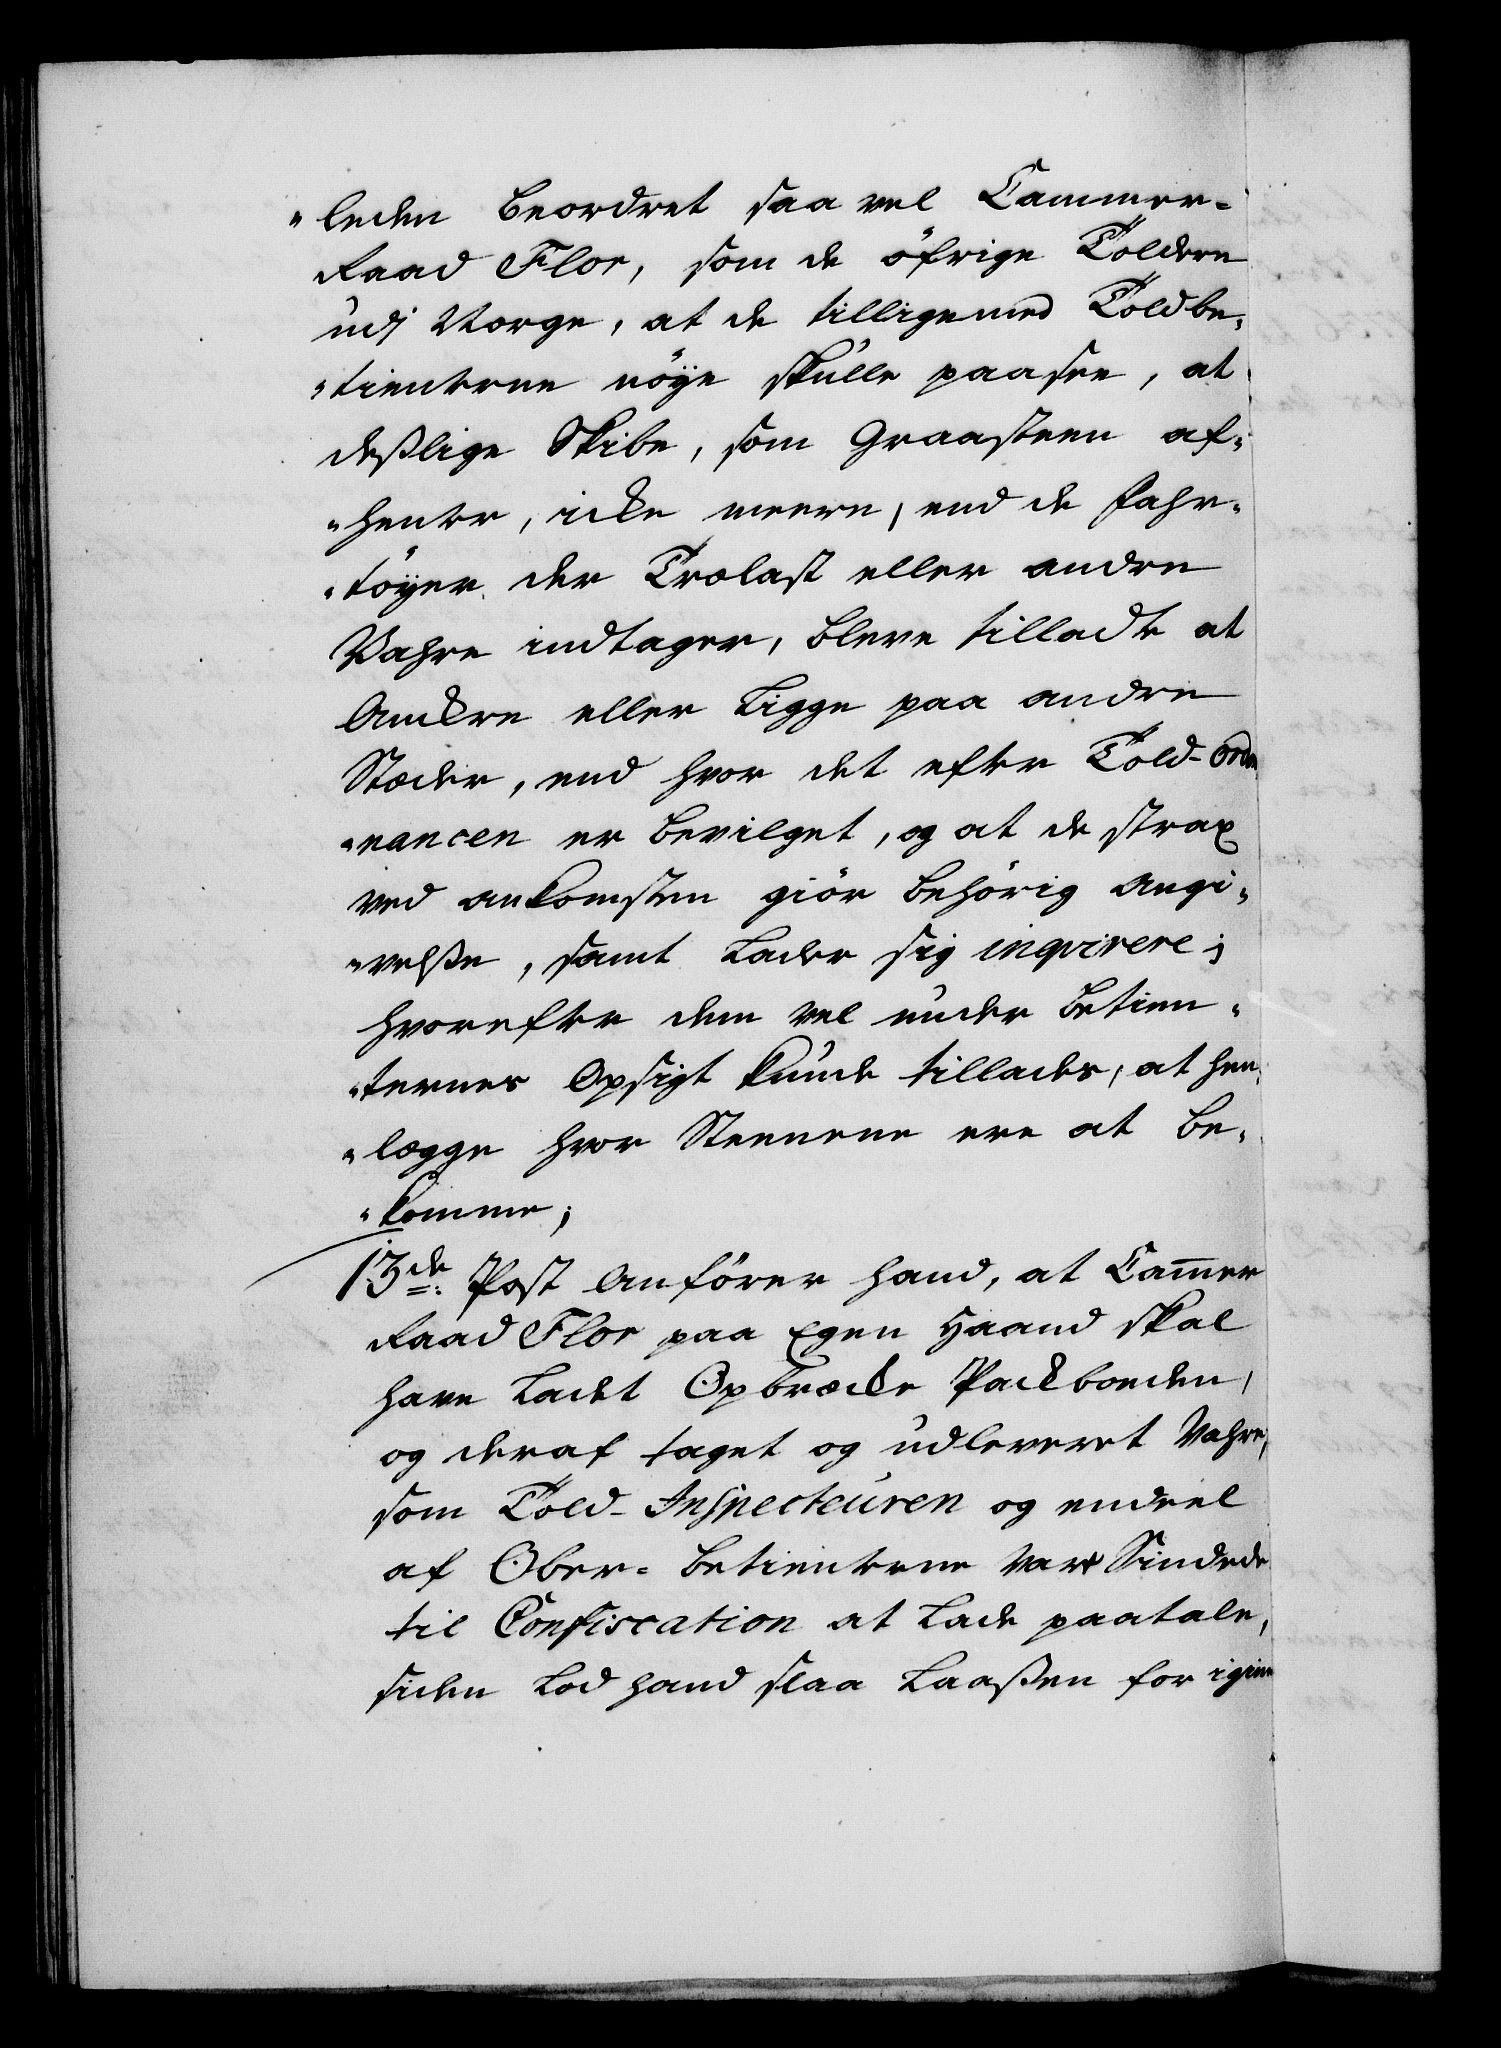 "leden beordret saa vel Cammer-
Raad Flor, som de öfrige Toldere
udj Norge, at de tilligemed Toldbe,
"tienterne nöye skulle paasee, at
deßlige Skibe, som Graasteen af-
"henter, icke meere, end de fahr-
"töyer der Trælast eller andre
Vahre indtager, bleve tilladt at
Anckre eller Ligge paa andre
Stæder, end hvor det efter Told-Ordo
"nancen er bevilget, og at de strax
ved ankomsten giör behörig angi-
"velße, samt Lader sig inqvirere;
hvorefter dem vel under betien-
"ternes Opsigt kunde tillades, at hen,
"lægge hvor Steenene ere at be-
"komme;
13de: Post Anförer hand, at Cammer
Raad Flor paa Egen Haand skal
have Ladet Opbræcke Packboeden,
og deraf taget og udleveret Vahre,
som Told-Inspecteuren og endeel
af Ober-betienterne vare Sindede
til Confiscation at Lade paatale,
siden Lod hand slaa Laaßen for igien